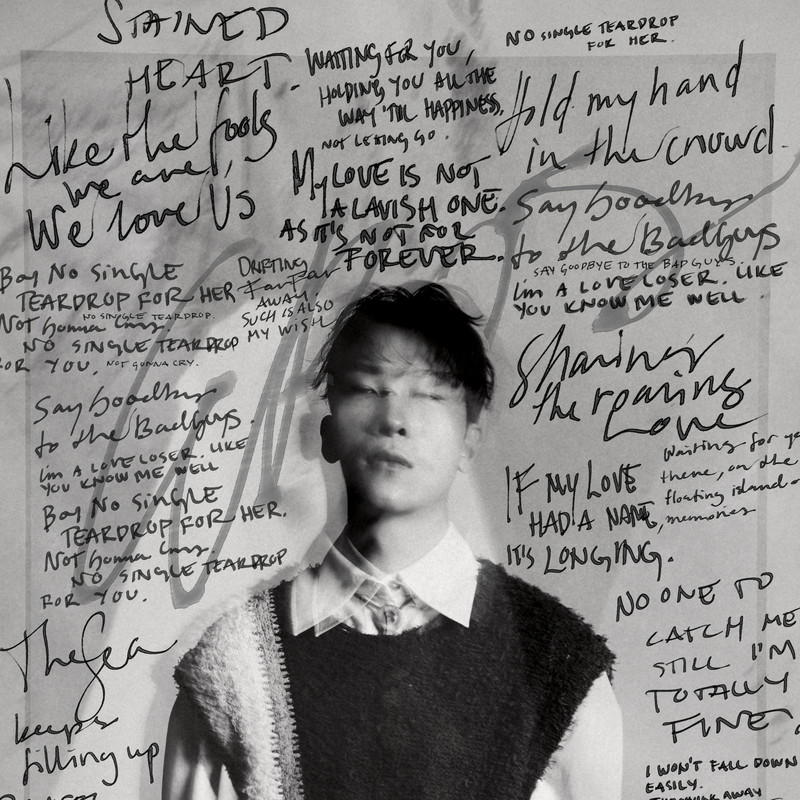 STAINED
HEART.
Like the fools
we are,
We love Us
WAITING FOR YOU,
HOLDING YOU ALL THE
WAY 'TIL HAPPINESS,
NOT LETTING GO.
My LOVE IS NOT
A LAVISH ONE.
AS IT'S NOT FOR
FOREVER.
NO SINGLE TEARDROP
FOR HER.
Hold my hand
in the crowd.
Say Goodbye
to the BadGuys.
SAY GOODBYE TO THE BAD GUYS.
I'm A LOVE LOSER. LIKE
YOU KNOW ME WELL.
Boy No SINGLE
TEARDROP FOR HER
NO SINGLE TEARDROP.
Not Gonna Cry.
NO SINGLE TEARDROP
FOR YOU. NOT GONNA CRY.
DRIFTING
Far Far
AWAY
SUCH IS ALSO
MY WISH
Say Goodbye
to the BadGuys.
I'm A LOVE LOSER. LIKE
YOU KNOW ME WELL
Boy No SINGLE
TEARDROP FOR HER.
Not Gonna Cry.
NO SINGLE TEARDROP
FOR YOU.
Sharing
the roaring
Love
IF MY LOVE
HAD A NAME,
IT'S LONGING.
Waiting for
there, on the
floating island
memories
The Sea
keeps
filling up
NO ONE TO
CATCH ME
STILL I'M
TOTALLY
FINE,
I WON'T FALL DOWN
EASILY.
AWAY